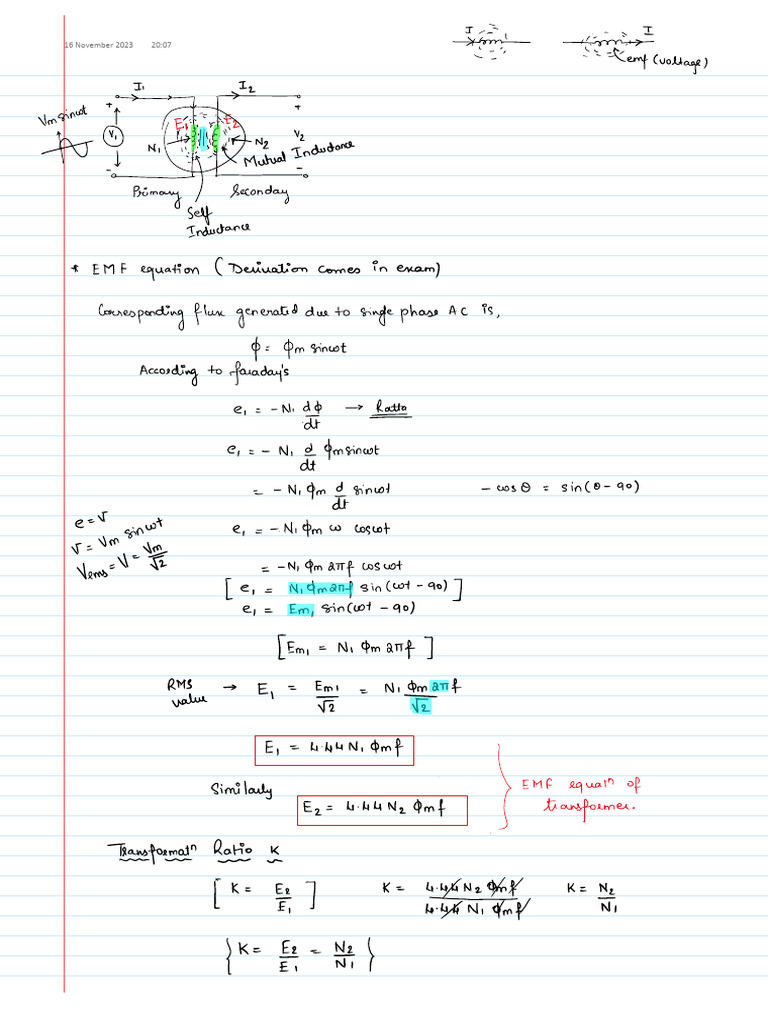 16 November 2023 20:07
I I
emf (voltage)
I1 I2
Vm sinωt
+ +
E1 E2
V1 N1 N2 V2
Mutual Inductance
- -
Primary Seconday
Self
Inductance
* EMF equation (Derivation comes in exam)
Corresponding flux generated due to single phase AC is,
ϕ = ϕm sinωt
According to faraday's
e1 = -N1 dϕ/dt → Ratto
e1 = - N1 d/dt ϕm sinωt
= - N1 ϕm d/dt sinωt - cosθ = sin(θ-90)
e = v
v = Vm sinωt
Vrms = V = Vm/√2
e1 = -N1 ϕm ω cosωt
= -N1 ϕm 2πf cosωt
[ e1 = N1 ϕm 2πf sin(ωt - 90) ]
e1 = Em1 sin(ωt - 90)
[Em1 = N1 ϕm 2πf]
RMS value → E1 = Em1/√2 = N1 ϕm 2πf/√2
E1 = 4.44 N1 ϕm f
EMF equatn of
transformer.
Similarly
E2 = 4.44 N2 ϕm f
Transformatn Ratio K
[K = E2/E1] K = 4.44 N2 ϕm f/4.44 N1 ϕm f K = N2/N1
{K = E2/E1 = N2/N1}